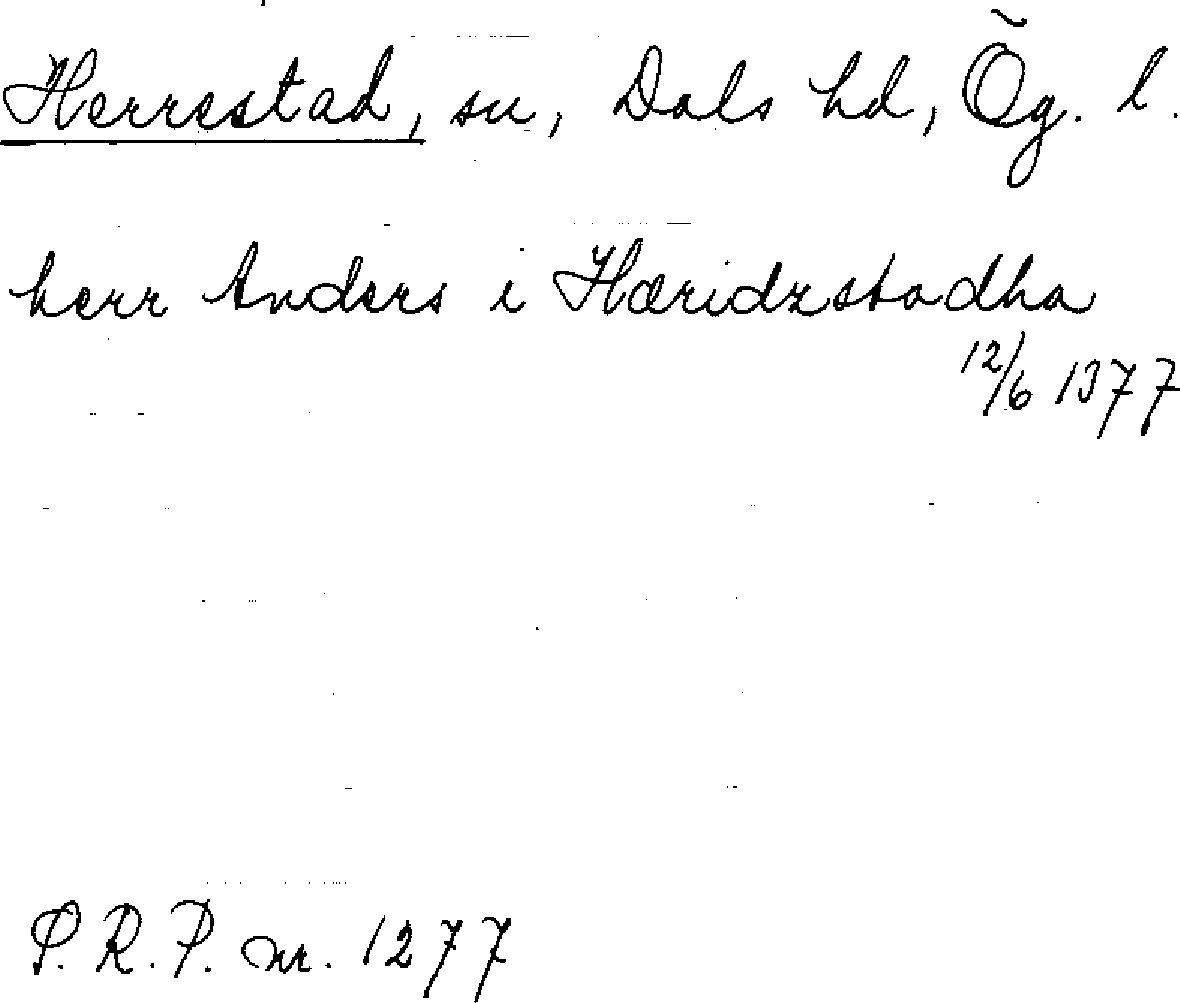 Herrestad, sn, Dals hd, Ög. l.
herr Anders i Hæridzstadha
12/6 1377
P.R.P. nr. 1277